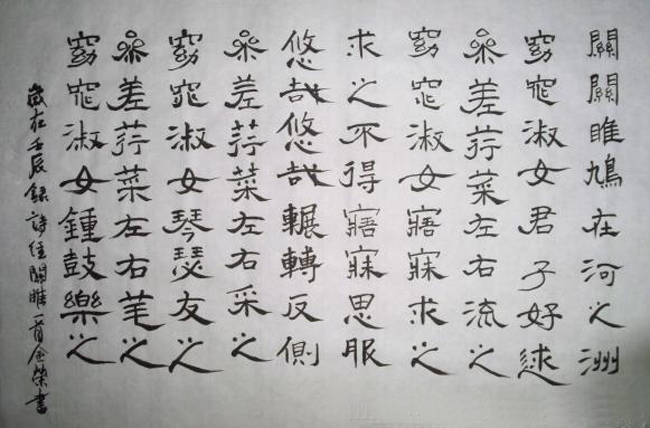 關關雎鳩在河之洲
窈窕淑女君子好逑
參差荇菜左右流之
窈窕淑女寤寐求之
求之不得寤寐思服
悠哉悠哉輾轉反側
參差荇菜左右采之
窈窕淑女琴瑟友之
參差荇菜左右芼之
窈窕淑女鍾鼓樂之
歲在壬辰錄詩經關雎一首金榮書